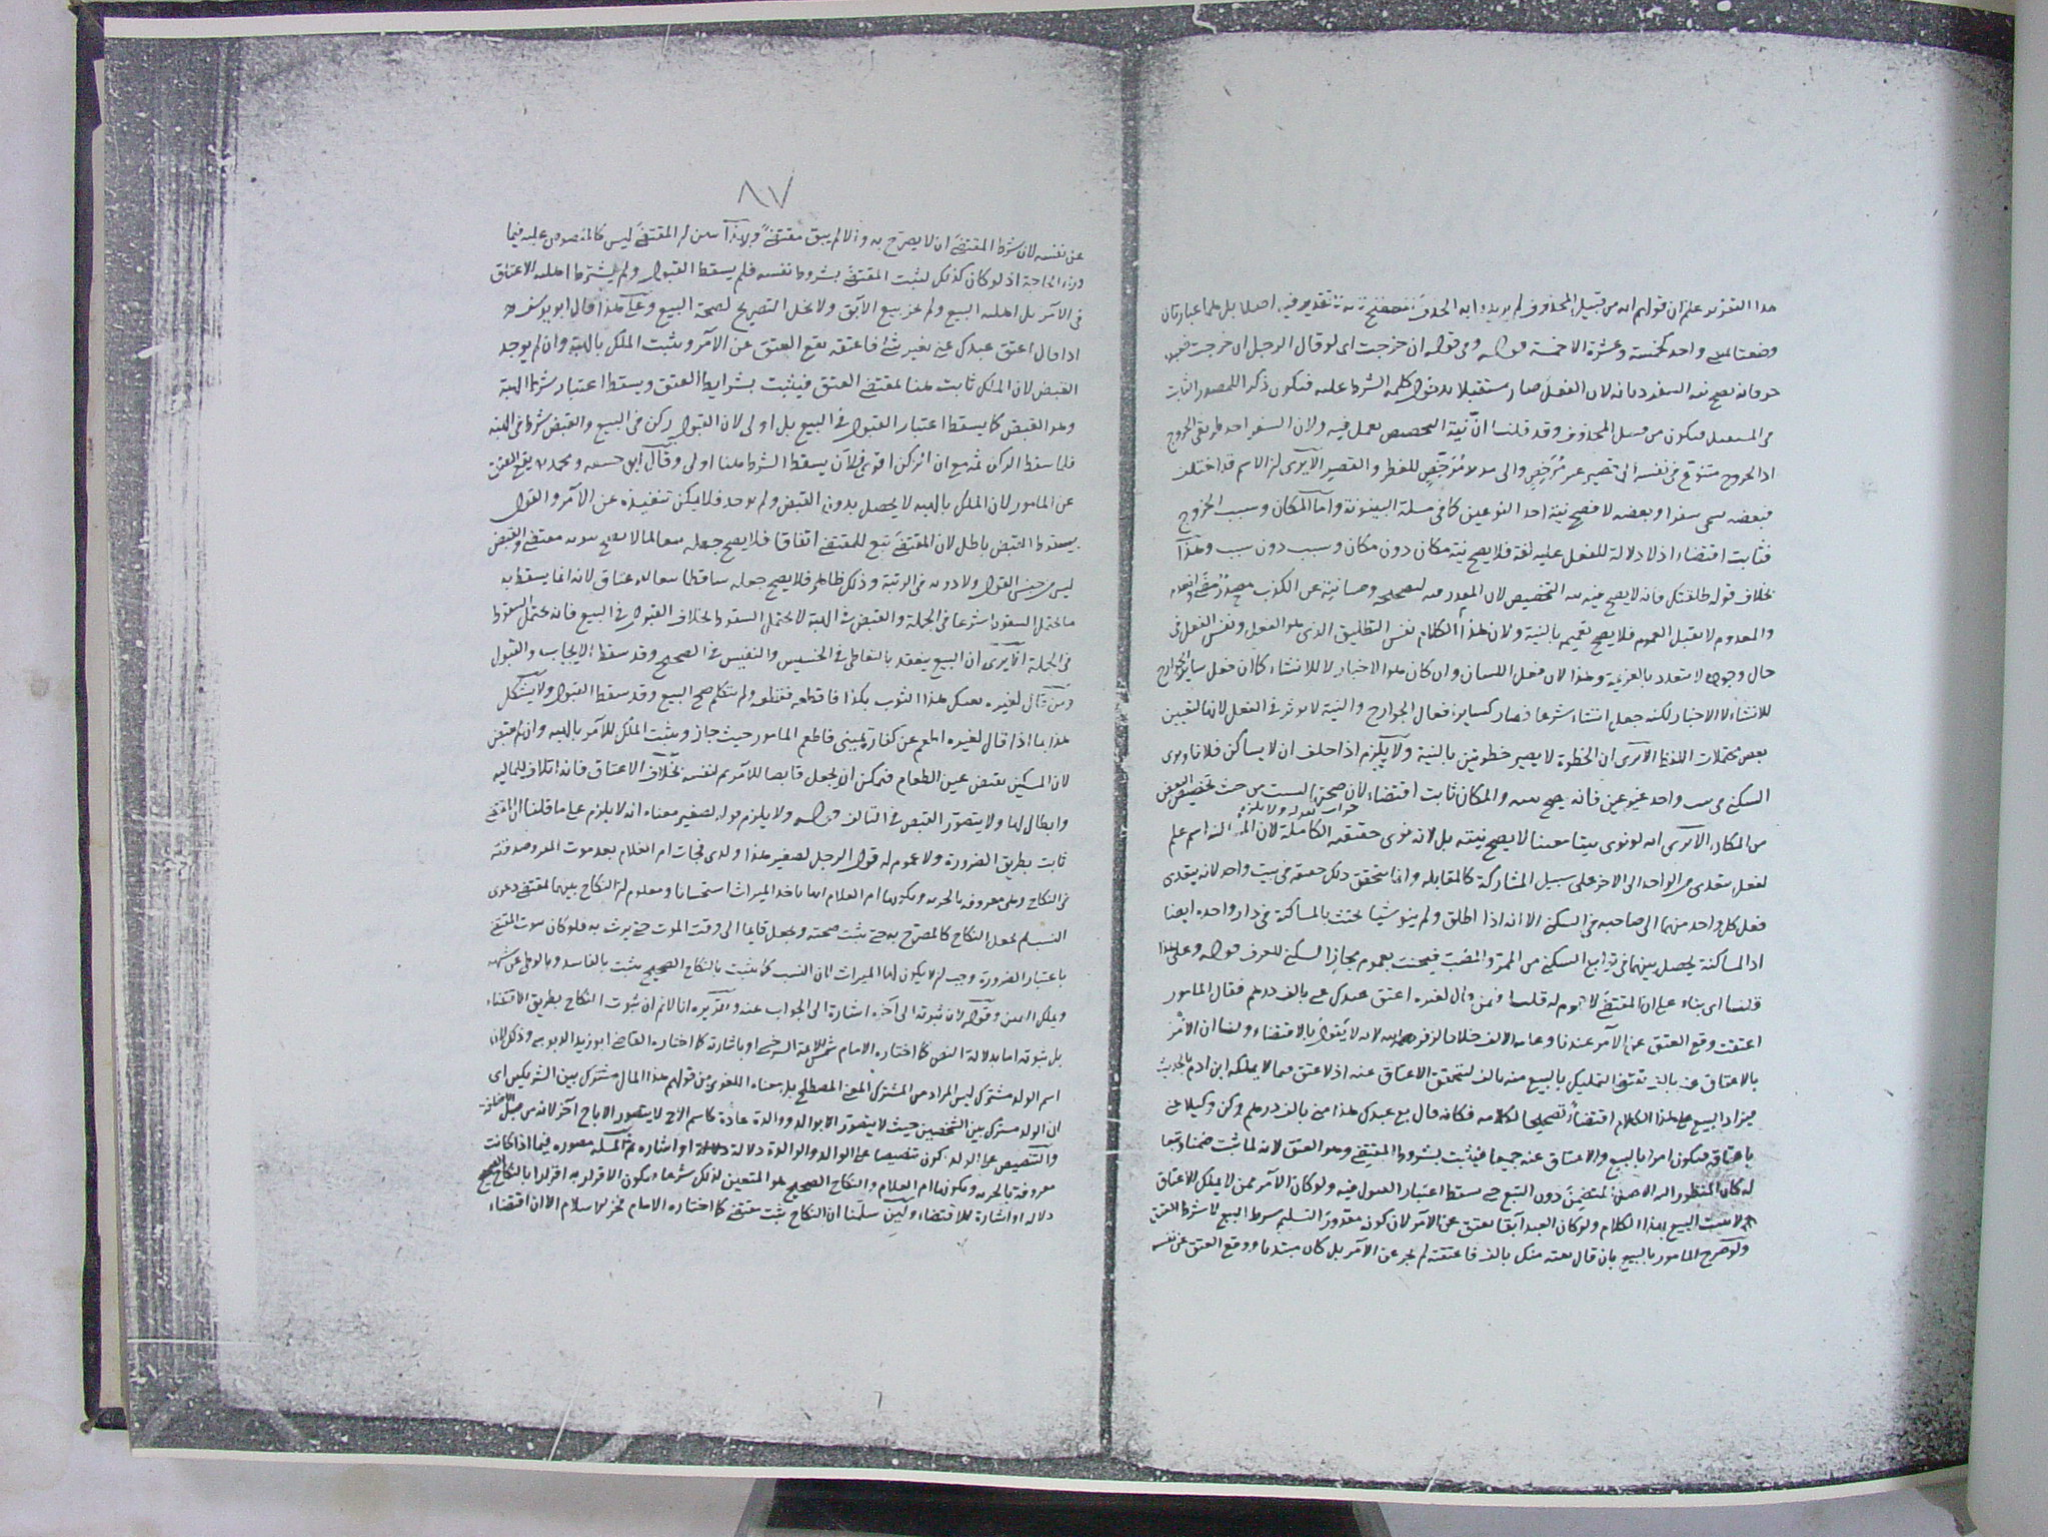 هذا التقرير علم ان قولهم انه من قبيل المحذوف لم يريدوا به الحذف تقديره فيه اصلا بل هما عبارتان
وضعتا لمعنى واحد كخمسة وعشرة الا خمسة قوله وفي قوله ان خرجت اى لو قال الرجل ان خرجت فعبدى
حر فانه يصح نية السفر ديانة لان الفعل صار مستقبلا بدخول كلمة الشرط عليه فيكون ذكرا للمصدر الثابت
في المستقبل فيكون من قبيل المحذوف وقد قلنا ان نية التخصيص يعمل فيه ولان السفر احد طريقى الخروج
اذ الخروج متنوع في نفسه الى قصير غير مرخص والى مديد مرخص للفطر والقصر الا يرى ان الاسم قد اختلف
فبعضه يسمى سفرا وبعضه لا فصح نية احد النوعين كما في مسئلة البينونة واما المكان وسبب الخروج
فثابت اقتضاء اذ لا دلالة للفعل عليه لغة فلا يصح نية مكان دون مكان وسبب دون سبب وهذا
بخلاف قوله طلقتك فانه لا يصح فيه نية التخصيص لان المصدر فيه لتصحيحه وصيانته عن الكذب
والمعدوم لا يقبل العموم فلا يصح تعميم بالنية ولان هذا الكلام نفس التطليق الذى هو الفعل ونفس الفعل في
حال وجوده لا يتعدد بالعزيمة وهذا لان فعل اللسان وان كان هو الاخبار لا للانشاء كما ان فعل ساير الجوارح
للانشاء لا الاخبار لكنه جعل انشاء شرعا فصار كساير افعال الجوارح والنية لا يؤثر في الفعل لانها لتعيين
بعض محتملات اللفظ الا يرى ان الخطوة لا يصير خطوتين بالنية ولا يلزم اذا حلف ان لا يساكن فلانا ونوى
السكنى في بيت واحد غير عين فانه يصح نيته والمكان ثابت اقتضاء لان صحة النية ليست من حيث تخصيص البعض
جواب لقوله ولا يلزم
من المكان الا يرى انه لو نوى بيتا معينا لا يصح نيته بل لانه نوى حقيقته الكاملة لان اسم علم
لفعل يتعدى من الواحد الى الاخر على سبيل المشاركة كالمقابلة وانما يتحقق ذلك حقيقة في بيت واحد لانه يتعدى
فعل كل واحد منهما الى صاحبه في السكنى الا انه اذا اطلق ولم ينو شيا يحنث بالمساكنة في دار واحدة ايضا
اذ المساكنة يحصل بينهما في توابع السكنى من الممر والمصب فيحنث بعموم مجاز السكنى للعرف قوله وعلى هذا
قلنا اى بناء على ان المقتضى لا عموم له قلنا فيمن قال لغيره اعتق عبدك عنى بالف درهم فقال المامور
اعتقت وقع العتق عن الآمر عندنا وعليه الالف خلافا لزفر رحمه الله لانه لا يقول بالاقتضاء ولنا ان الامر
بالاعتاق عنه بالف يقتضى التمليك بالبيع منه بالف لتحقق الاعتاق عنه اذ لا عتق فيما لا يملكه ابن ادم بالحديث
فيزاد البيع على هذا الكلام اقتضاء تصحيحا لكلامه فكانه قال بع عبدك هذا منى بالف درهم وكن وكيلا عنى
باعتاقه فيكون امرا بالبيع والاعتاق عنه جميعا فيثبت بشروط المقتضى وهو العتق لانه لما ثبت ضمنا وتبعا
له كان المنظور اليه الاصل المتضمن دون التبع حتى سقط اعتبار القبول فيه ولو كان الآمر ممن لا يملك الاعتاق
لا يثبت البيع بهذا الكلام ولو كان العبد آبقا يعتق عن الآمر لان كونه مقدور التسليم شرط البيع لا شرط العتق
ولو صرح المامور بالبيع بان قال بعته منك بالف فاعتقه لم يجز عن الآمر بل كان مبتدئا ووقع العتق عن نفسه
٨٧
عن نفسه لان شرط المقتضى ان لا يصرح به والا لم يبق مقتضى ولهذا ان المقتضى ليس كالمنصوص عليه فيما
وراء الحاجة اذ لو كان كذلك لثبت المقتضى بشروط نفسه فلم يسقط القبول ولم يشترط اهلية الاعتاق
في الآمر بل اهلية البيع ولم يجز بيع الآبق ولا يخل التصريح لصحة البيع وعلى هذا قال ابو يوسف
اذا قال اعتق عبدك عنى بغير شئ فاعتقه يقع العتق عن الآمر ويثبت الملك بالهبة وان لم يوجد
القبض لان الملك ثابت هنا بمقتضى العتق فيثبت بشرايط العتق ويسقط اعتبار شرط الهبة
وهو القبض كما يسقط اعتبار القبول في البيع بل اولى لان القبول ركن في البيع والقبض شرط في الهبة
فلما سقط الركن ثمه مع ان الركن اقوى فلان يسقط الشرط هنا اولى وقال ابو حنيفة ومحمد يقع العتق
عن المامور لان الملك بالهبة لا يحصل بدون القبض ولم يوجد فلا يمكن تنفيذه عن الآمر والقول
بسقوط القبض باطل لان المقتضى تبع للمقتضى اتفاقا فلا يصح جعله والقبض
ليس من جنس القول ولا دونه في الرتبة وذلك ظاهر فلا يصح جعله ساقطا تبعا للاعتاق لانه انما يسقط به
ما يحتمل السقوط شرعا في الجملة والقبض في الهبة لا يحتمل السقوط بخلاف القبول في البيع فانه يحتمل السقوط
في الجملة الا يرى ان البيع ينعقد بالتعاطى في الخسيس والنفيس في الصحيح وقد سقط الايجاب والقبول
ومن قال لغيره بعتك هذا الثوب بكذا فاقطعه فقطعه ولم يتكلم صح البيع وقد سقط القبول ولا يشكل
هذا بما اذا قال لغيره اطعم عن كفارة يمينى فاطعم المامور حيث جاز ويثبت الملك للآمر بالهبة وان لم يقبض
لان المسكين يقبض عين الطعام فيمكن ان يجعل قابضا للآمر ثم لنفسه بخلاف الاعتاق فانه اتلاف للمالية
وابطال لها ولا يتصور القبض في التالف قوله ولا يلزم قوله لصغير معناه انه لا يلزم على ما قلنا ان المقتضى
ثابت بطريق الضرورة ولا عموم له قول الرجل لصغير هذا ولدى فجاءت ام الغلام بعد موت المقر وصدقته
في النكاح وهى معروفة بالحرية وبكونها ام الغلام انها تاخذ الميراث استحسانا ومعلوم ان النكاح بينهما بمقتضى دعوى
النسب ثم يجعل النكاح كالمصرح به حتى يثبت صحته ويجعل قايما الى وقت الموت حتى يرث به فلو كان ثبوت المقتضى
باعتبار الضرورة وجب ان لا يكون لها الميراث لان النسب كما يثبت بالنكاح الصحيح يثبت بالفاسد وبالوطى عن شبهة
وبملك اليمين وقوله لان ثبوته الى آخره اشارة الى الجواب عنه وتقريره انا لا نم ان ثبوت النكاح بطريق الاقتضاء
بل ثبوته اما بدلالة النص كما اختاره الامام شمس الائمة السرخسى او باشارته كما اختاره القاضى ابو زيد الدبوسى وذلك لان
اسم الولد مشترك ليس المراد من المشترك المعنى المصطلح بل معناه اللغوى من قولهم هذا المال مشترك بين الشريكين اى
ان الولد مشترك بين الشخصين حيث لا يتصور الا بوالد ووالدة عادة كاسم الاخ لا يتصور الا باخ آخر لانه من قبيل الاضافة
والتنصيص على الولد يكون تنصيصا على الوالد والوالدة دلالة او اشارة ثم المسئلة مصورة فيما اذا كانت
معروفة بالحرية وبكونها ام الغلام والنكاح الصحيح هو المتعين لذلك شرعا فيكون الاقرار به اقرارا بالنكاح الصحيح
دلالة او اشارة لا اقتضاء ولئن سلمنا ان النكاح ثبت مقتضى كما اختاره الامام فخر الاسلام الا ان اقتضاء